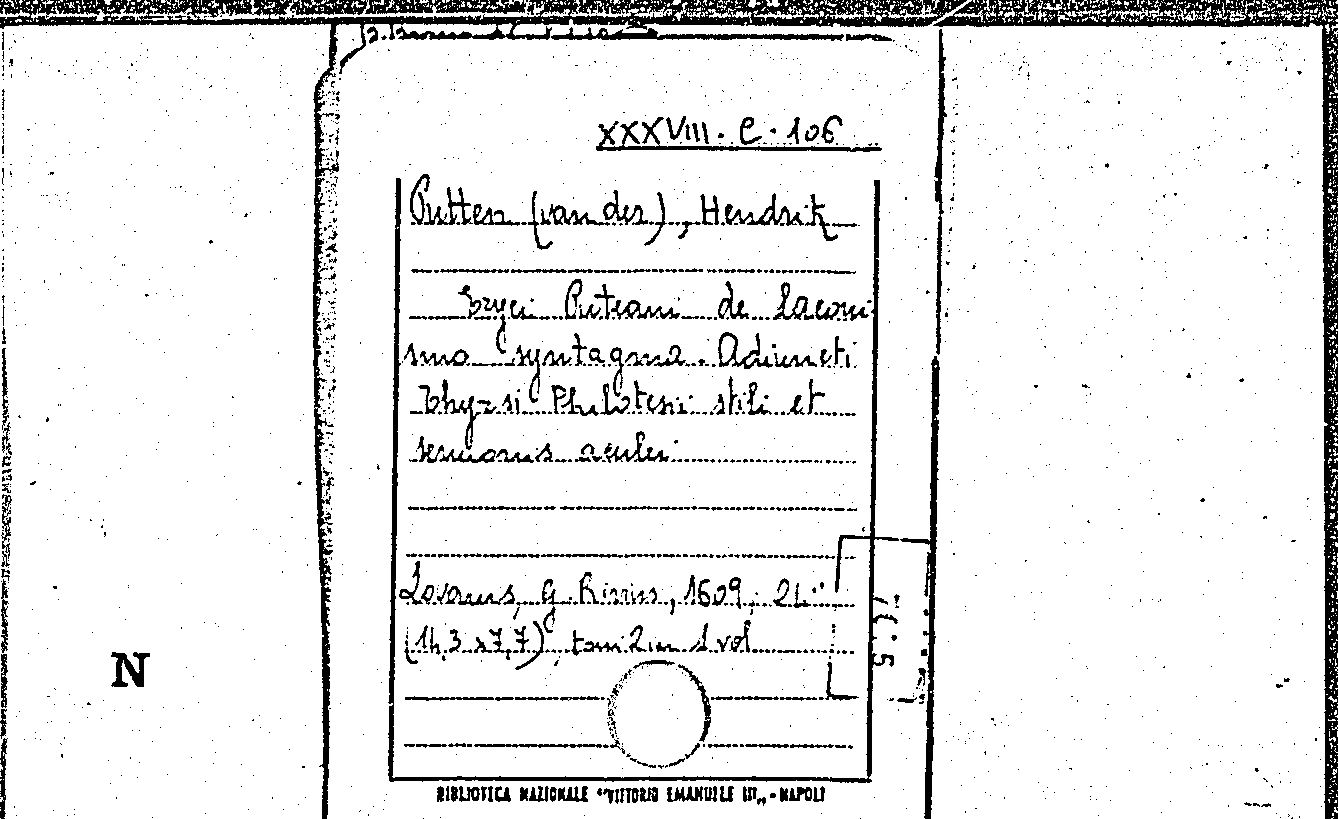 XXXVIII. C. 106
Putten (van der), Hendrik
Eryci Puteani de laconi
smo syntagma. Adiuncti
Thyrsi Philotesii stili et
sermonis aculei
Lovanii, G. Rivius, 1609, 24°
(14,3 x 7,7), tomi 2 in 1 vol
N
BIBLIOTECA NAZIONALE "VITTORIO EMANUELE III„ - NAPOLI